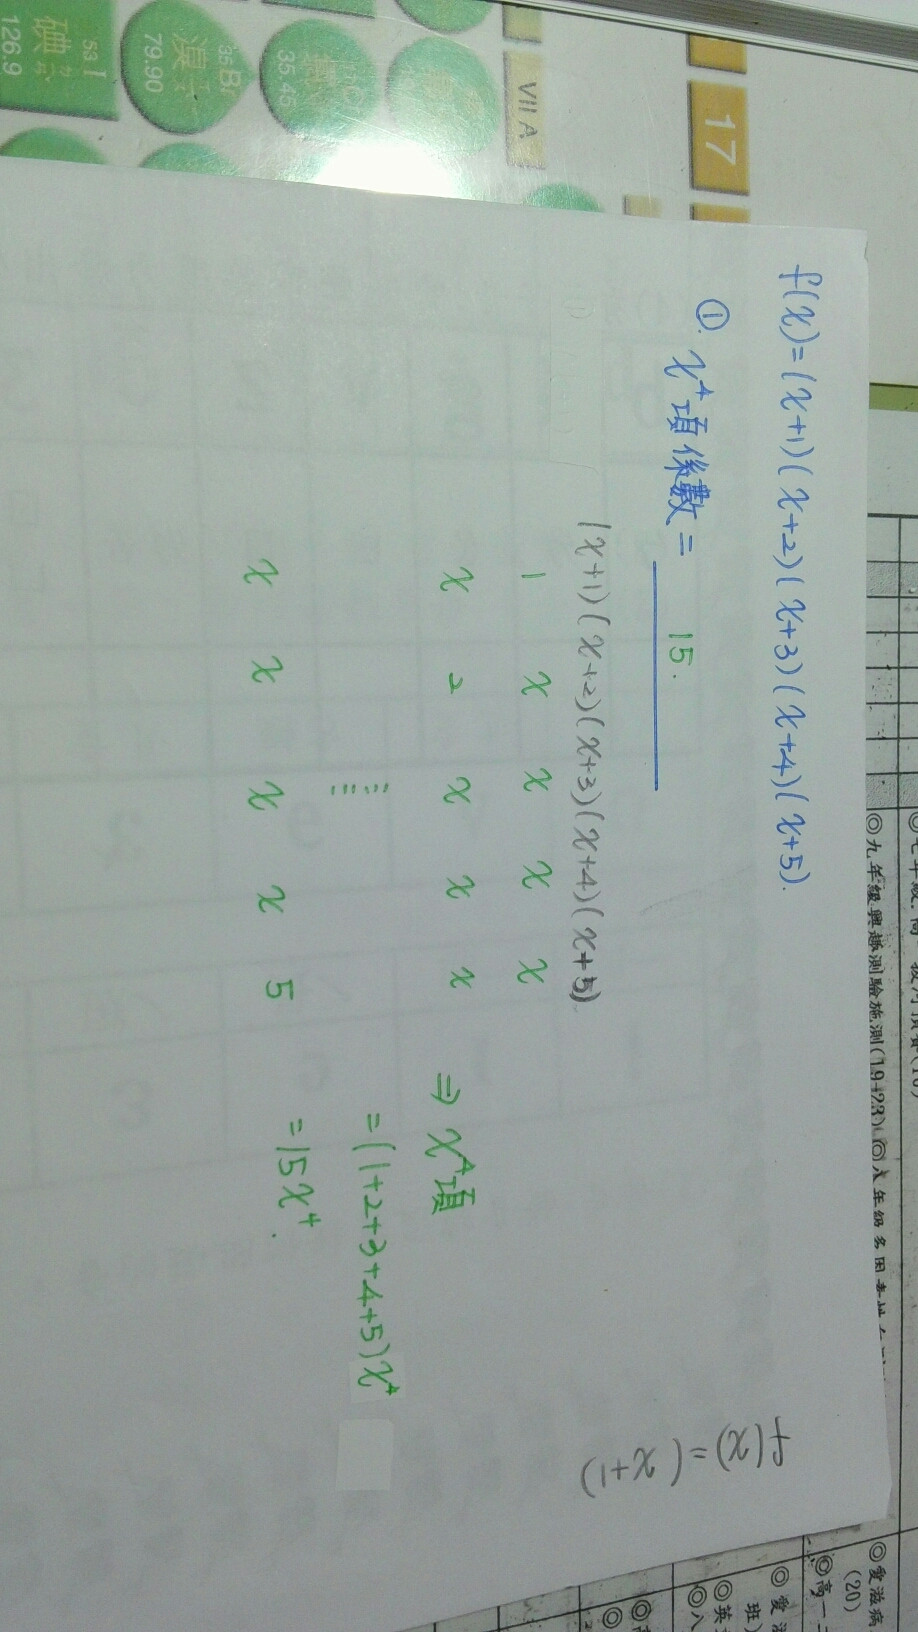 f(x)=(x+1)(x+2)(x+3)(x+4)(x+5).
①. x⁴項係數= 15.
(x+1)(x+2)(x+3)(x+4)(x+5).
1 x x x x
x 2 x x x
⇒ x⁴項
=(1+2+3+4+5)x⁴
x x x x 5
=15x⁴.
f(x)=(x+1)
17
VII A
35.45
35 Br
溴
79.90
53 I
碘
126.9
◎九年級興趣測驗施測(19-23)
◎愛滋病
(20)
◎高一
◎愛滋
班)
◎英
◎八